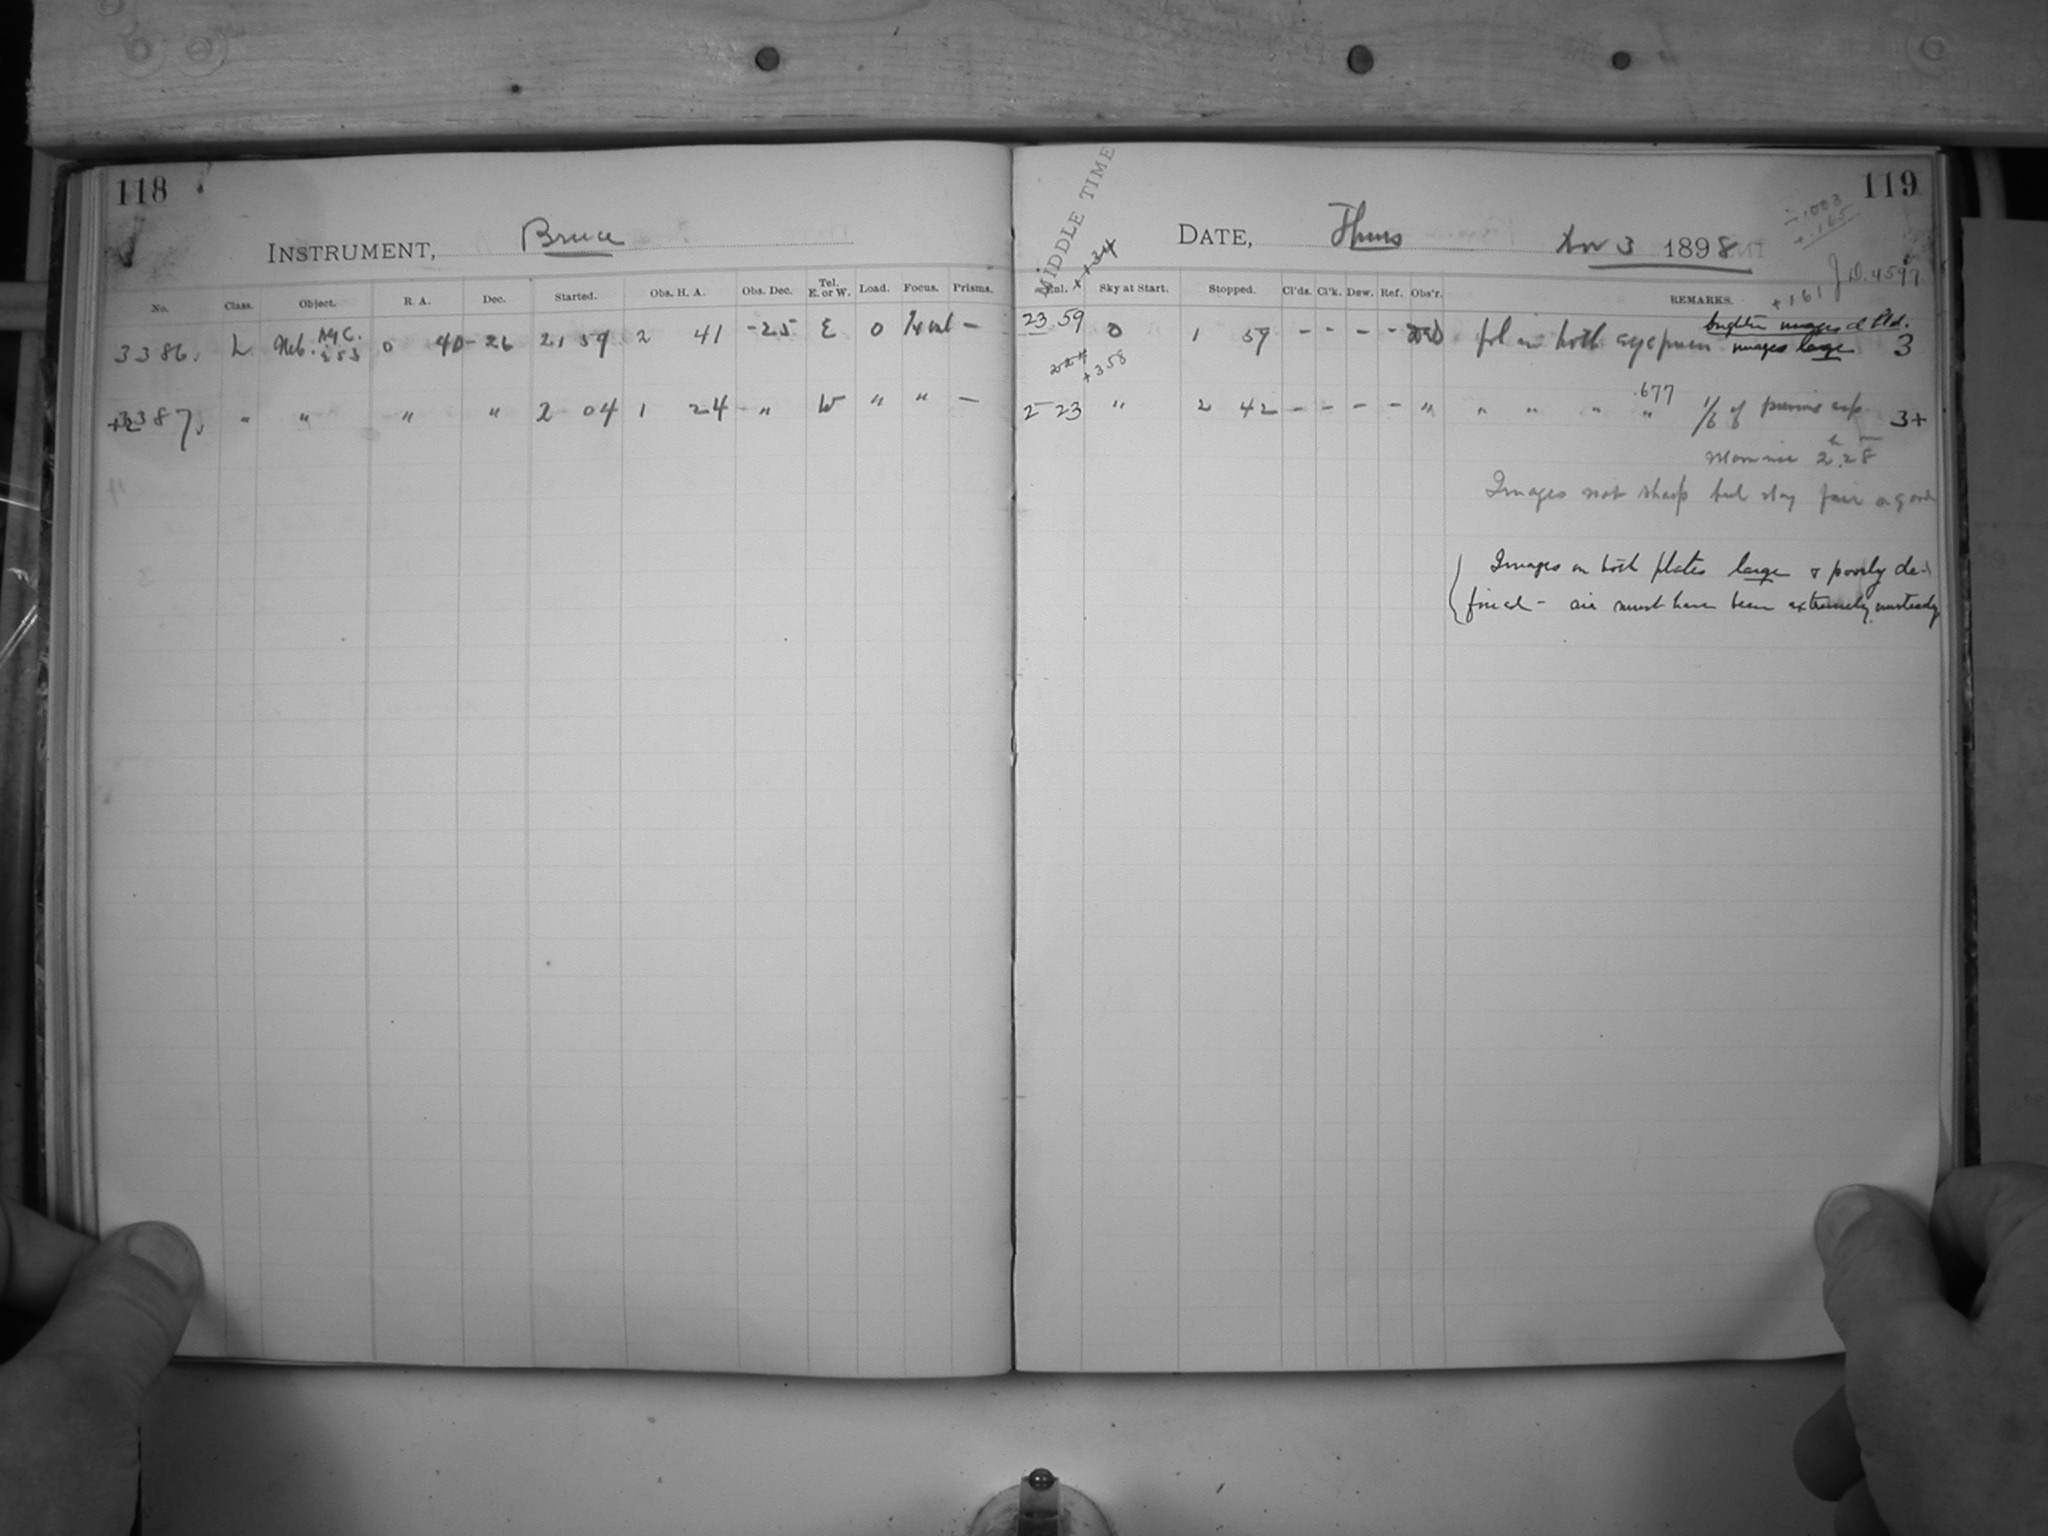 118
INSTRUMENT, Bruce
No. Class. Object. R. A. Dec. Started. Obs. H. A. Obs. Dec. Tel. E. or W. Load. Focus. Prisms.
3386. L Neb. N.G.C. 253 0 40 -26 21 59 2 41 -25 E 0 –
3387. " " " " 2 04 1 24 " W " " –
119
MIDDLE TIME
DATE, Thurs Nov 3 1898
J.D. 4597
+161
Enl. Sky at Start. Stopped. Cl'ds. Cl'k. Dew. Ref. Obs'r. REMARKS.
23 59 0 1 59 – – – – in both images large 3
+358
.677
2 23 " 2 42 – – – – " " " " " 1/6 of previous exp. 3+
Moonrise 2h 28m
Images not sharp but stay fair
Images on both plates large & poorly de-
fined – air must have been extremely unsteady